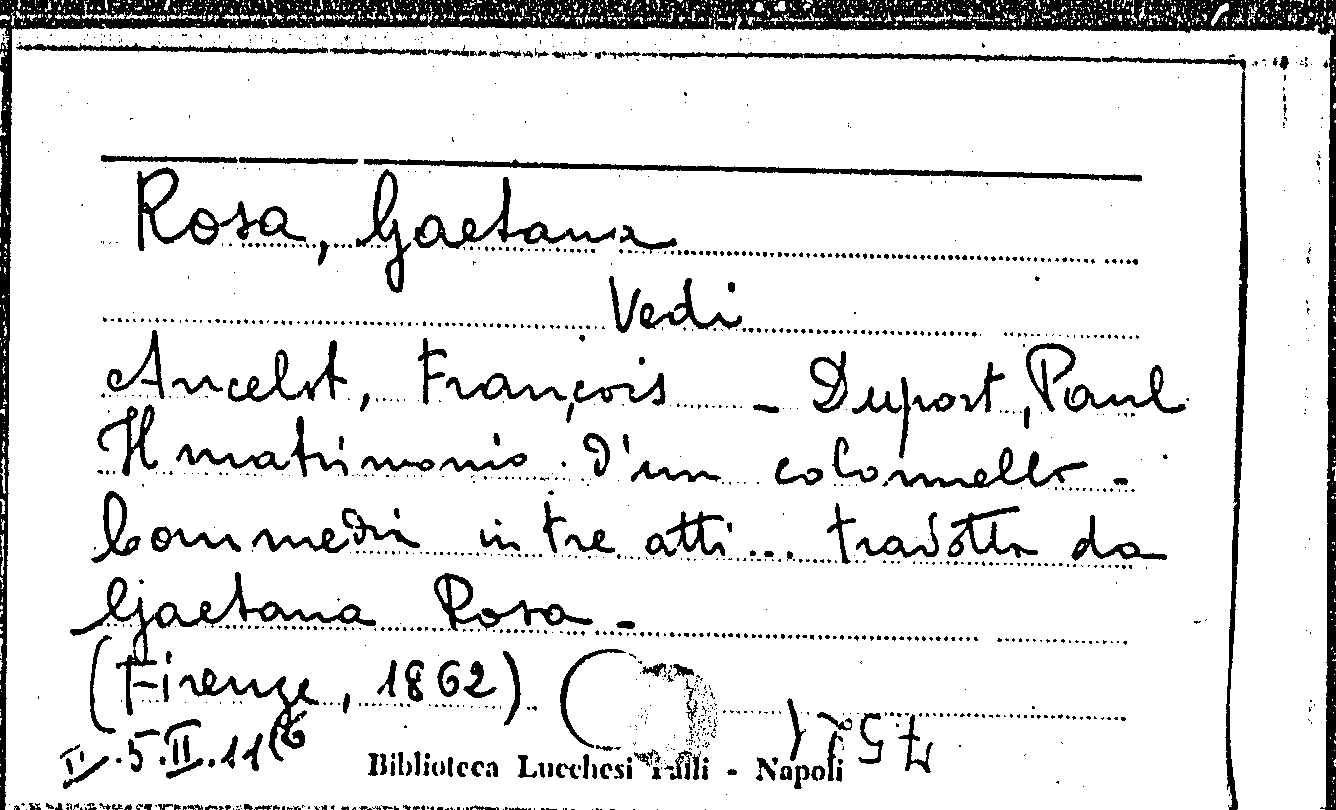 Rosa, Gaetana
Vedi
Ancelot, François - Duport, Paul
Il matrimonio d'un colonnello -
Commedia in tre atti... tradotta da
Gaetana Rosa -
(Firenze, 1862)
II.5.II.11(6
Biblioteca Lucchesi Palli - Napoli